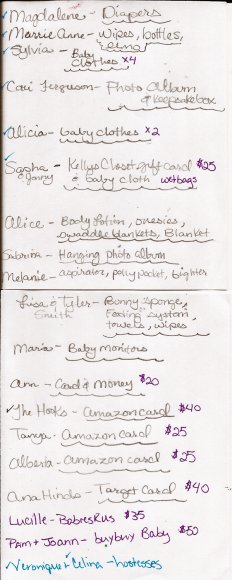 ✓ Magdalene - Diapers
✓ Marrie Anne - Wipes, bottles,
✓ Sylvia - Baby clothes x4
✓ Cari Ferguson - Photo Album
& keepsakebox
✓ Alicia - baby clothes x2
✓ Sasha - Kellys Closet gift card $25
& Jonny & Baby cloth wetbags
Alice - Body lotion, onesies,
swaddle blankets, Blanket
Sabrina - Hanging photo album
Melanie - aspirator, polly pocket,
Lisa & Tyler - Bunny sponge,
Smith Feeding system
towels, wipes
Maria - Baby monitors
Ann - Card & money $20
✓ The Hooks - Amazon card $40
Tanya - Amazon card $25
Alberta - Amazon card $25
Ana Hinds - Target Card $40
Lucille - BabiesRus $35
Pam + Joann - buybuy Baby $50
Veronique + Celina - hostesses